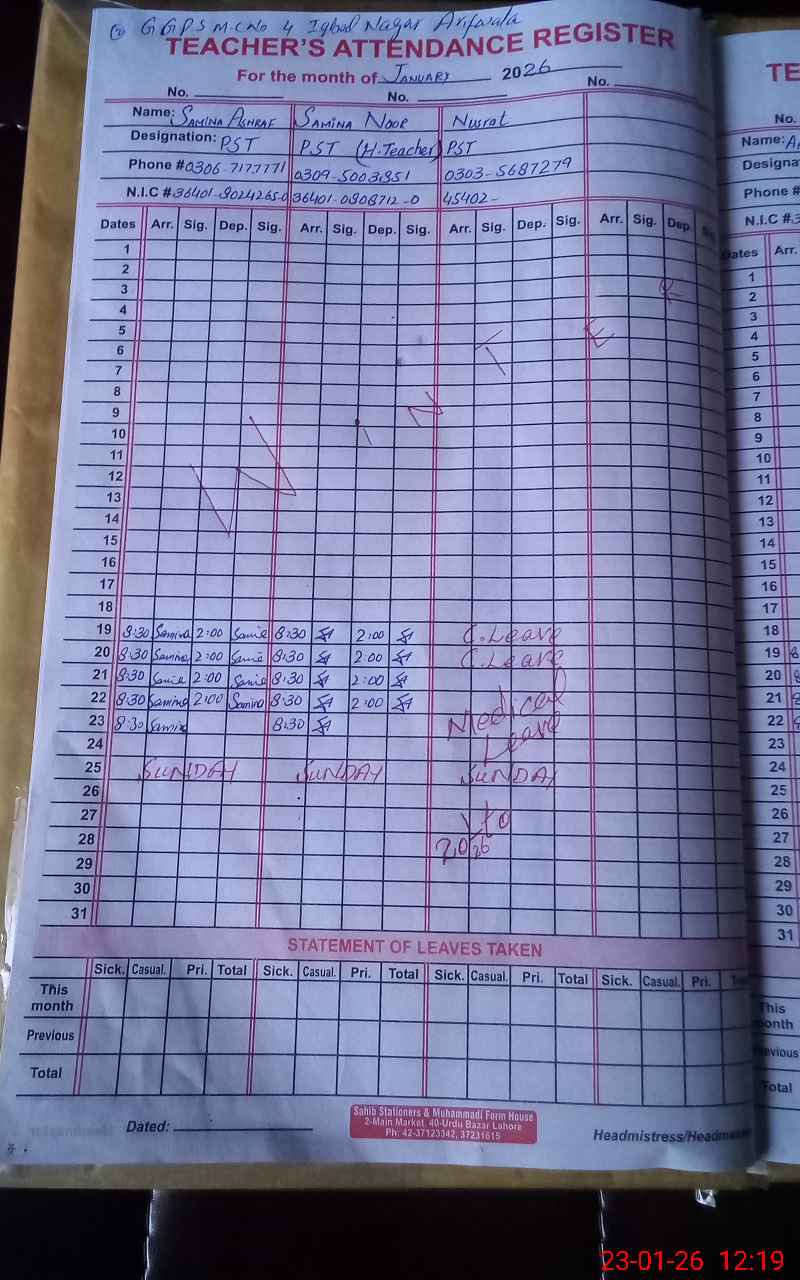 G G P S M.C No 4 Iqbal Nagar Arifwala
TEACHER'S ATTENDANCE REGISTER
For the month of JANUARY 2026
No. No. No.
Name: SAMINA ASHRAF SAMINA NOOR Nusrat
Designation: PST PST (H.Teacher) PST
Phone # 0306-7177771 0309-5003851 0303-5687279
N.I.C # 36401-8024265-0 36401-0808712-0 45402-
Dates Arr. Sig. Dep. Sig. Arr. Sig. Dep. Sig. Arr. Sig. Dep. Sig. Arr. Sig. Dep.
1
2
3
4
5
6
7
8
9
10
11
12
13
14
15
16
17
18
WINTER
19 8:30 Samina 2:00 Samina 8:30 2:00 C.Leave
20 8:30 Samina 2:00 Samina 8:30 2:00 C.Leave
21 8:30 Samina 2:00 Samina 8:30 2:00
22 8:30 Samina 2:00 Samina 8:30 2:00 Medical
23 8:30 Samina 8:30 Leave
24
25 SUNDAY SUNDAY SUNDAY
26
27 to
28
29
30
31
STATEMENT OF LEAVES TAKEN
Sick. Casual. Pri. Total Sick. Casual. Pri. Total Sick. Casual. Pri. Total Sick. Casual. Pri.
This month
Previous
Total
Dated:
Sahib Stationers & Muhammadi Form House
2-Main Market, 40-Urdu Bazar Lahore
Ph: 42-37123342, 37231615
Headmistress/Headmaster
TE
No.
Name: A
Designa
Phone #
N.I.C # 3
Dates Arr.
1
2
3
4
5
6
7
8
9
10
11
12
13
14
15
16
17
18
19 8
20 8
21 8
22 8
23
24
25
26
27
28
29
30
31
This
month
Previous
Total
23-01-26 12:19